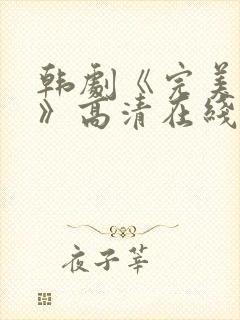 韩剧《完美
》高清在线
夜子莘